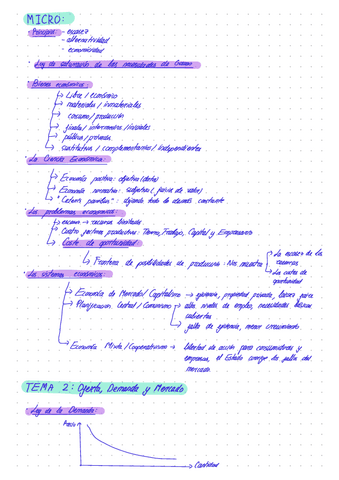 MICRO:
· Principios - escasez
- alternatividad
- economicidad
· Ley de saturación de las necesidades de Gossen
· Bienes económicos:
→ Libre / económico
→ materiales / inmateriales
→ consumo / producción
→ finales / intermedios / iniciales
→ público / privado
→ sustitutivos / complementarios / independientes
· La Ciencia Económica:
→ Economía positiva: objetiva (datos)
→ Economía normativa: subjetiva (juicios de valor)
→ "Ceteris paribus": dejando todo lo demás constante
· Los problemas económicos:
→ escasez → recursos limitados
→ Cuatro factores productivos: Tierra, Trabajo, Capital y Empresario
→ Coste de oportunidad
→ Frontera de posibilidades de producción: Nos muestra
→ La escasez de los recursos
→ Los costes de oportunidad
· Los sistemas económicos:
→ Economía de Mercado / Capitalismo → eficiencia, propiedad privada,
→ Planificación Central / Comunismo → altos niveles de empleo, necesidades básicas cubiertas
→ falta de eficiencia, menor crecimiento
→ Economía Mixta / →
libertad de acción para consumidores y
empresas, el Estado corrige los fallos del
mercado.
TEMA 2: Oferta, Demanda y Mercado
· Ley de la Demanda:
Precio
Cantidad